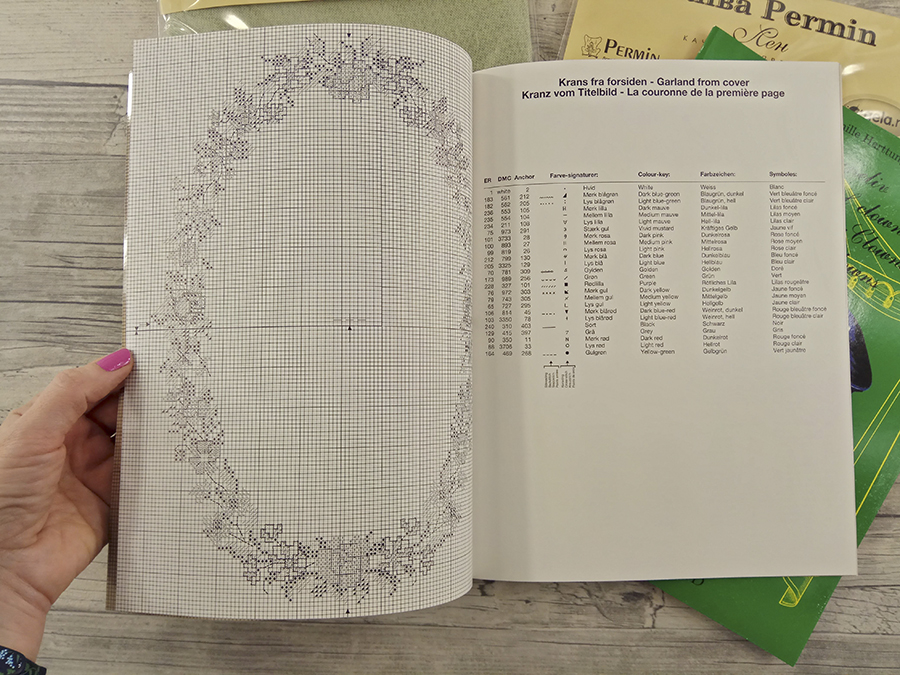 ва Permin
Лен
PERMIN
ela.r
ille Harttun
Krans fra forsiden - Garland from cover
Kranz vom Titelbild - La couronne de la première page
ER DMC Anchor Farve-signaturer: Colour-key: Farbzeichen: Symboles:
1 white 2 Hvid White Weiss Blanc
183 561 212 Mørk blågrøn Dark blue-green Blaugrün, dunkel Vert bleuâtre foncé
182 562 205 Lys blågrøn Light blue-green Blaugrün, hell Vert bleuâtre clair
236 553 105 Mørk lilla Dark mauve Dunkel-lila Lilas foncé
235 554 104 Mellem lilla Medium mauve Mittel-lila Lilas moyen
234 211 108 Lys lilla Light mauve Hell-lila Lilas clair
75 973 291 Stærk gul Vivid mustard Kräftiges Gelb Jaune vif
101 3733 28 Mørk rosa Dark pink Dunkelrosa Rose foncé
100 893 27 Mellem rosa Medium pink Mittelrosa Rose moyen
99 819 26 Lys rosa Light pink Hellrosa Rose clair
202 799 130 Mørk blå Dark blue Dunkelblau Bleu foncé
205 3325 129 Lys blå Light blue Hellblau Bleu clair
70 781 309 Gylden Golden Golden Doré
173 989 256 Grøn Green Grün Vert
228 327 101 Rødlilla Purple Rötliches Lila Lilas rougeâtre
76 972 303 Mørk gul Dark yellow Dunkelgelb Jaune foncé
79 743 305 Mellem gul Medium yellow Mittelgelb Jaune moyen
65 727 295 Lys gul Light yellow Hellgelb Jaune clair
106 814 45 Mørk blårød Dark blue-red Weinrot, dunkel Rouge bleuâtre foncé
103 3350 78 Lys blårød Light blue-red Weinrot, hell Rouge bleuâtre clair
240 310 403 Sort Black Schwarz Noir
129 415 397 Grå Grey Grau Gris
90 350 11 Mørk rød Dark red Dunkelrot Rouge foncé
88 3706 33 Lys rød Light red Hellrot Rouge clair
164 469 268 Gulgrøn Yellow-green Gelbgrün Vert jaunâtre